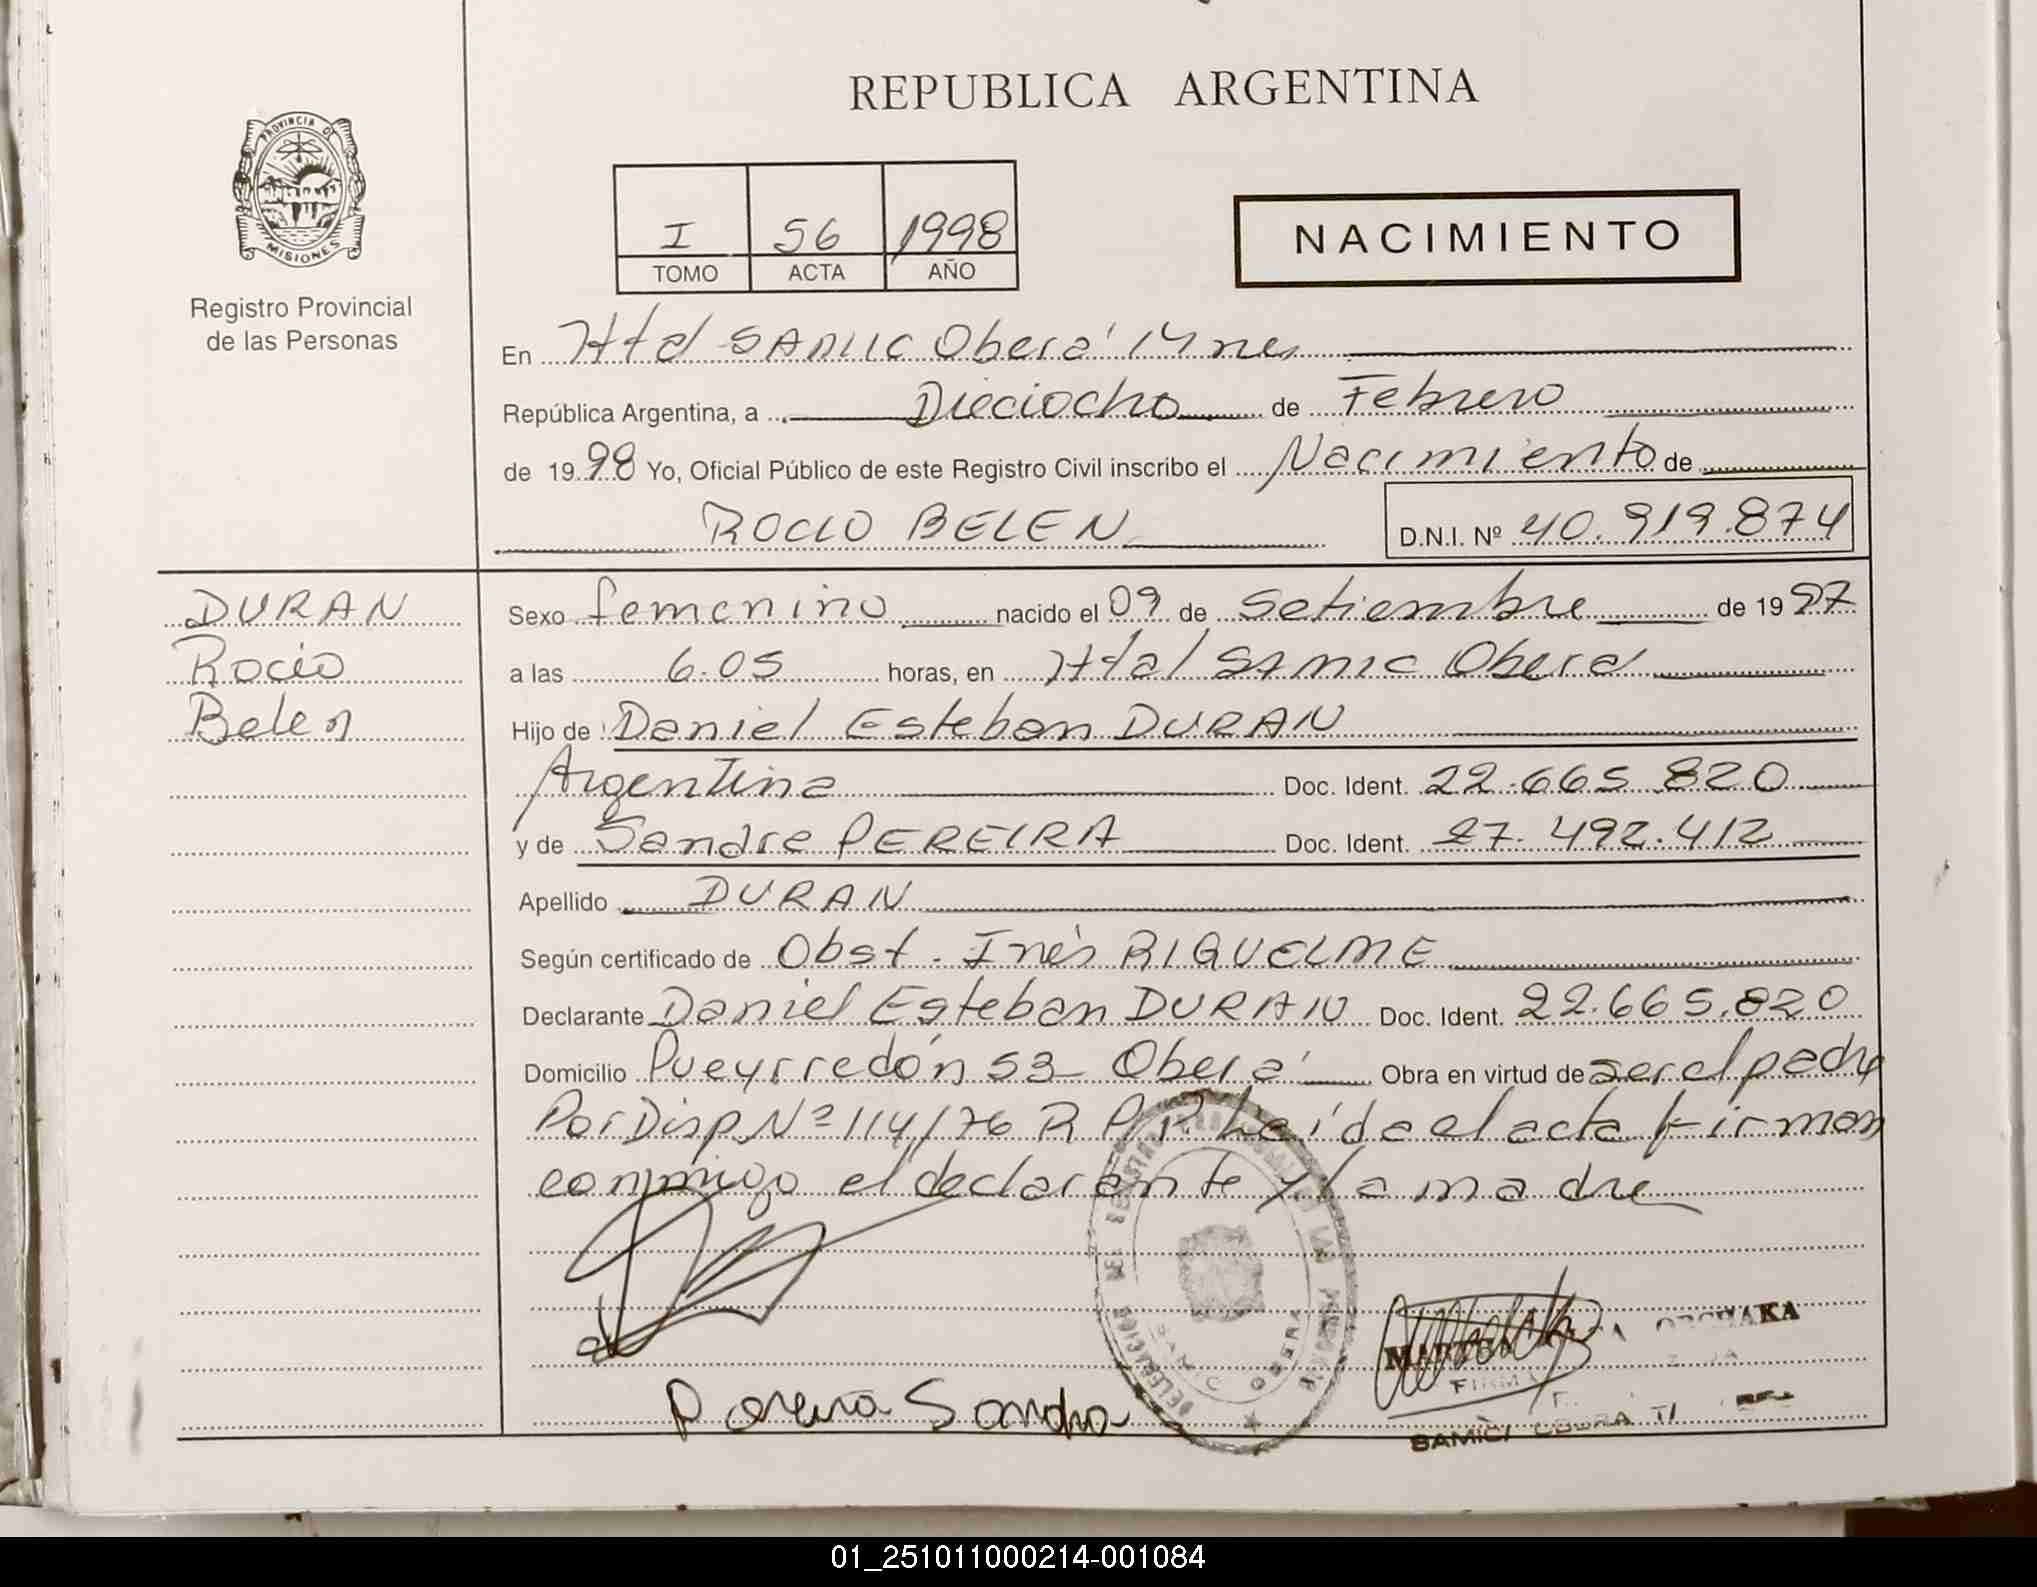 REPUBLICA ARGENTINA
PROVINCIA DE
MISIONES
Registro Provincial
de las Personas
I 56 1998
TOMO ACTA AÑO
NACIMIENTO
En Htal SAMIC Oberá Mnes
República Argentina, a Dieciocho de Febrero
de 1998 Yo, Oficial Público de este Registro Civil inscribo el Nacimiento de
ROCIO BELEN D.N.I. Nº 40.919.874
DURAN
Rocio
Belen
Sexo femenino nacido el 09 de Setiembre de 1997
a las 6.05 horas, en Htal SAMIC Oberá
Hijo de Daniel Esteban DURAN
Argentina Doc. Ident. 22.665.820
y de Sandra PEREIRA Doc. Ident. 27.492.412
Apellido DURAN
Según certificado de Obst. Inés RIQUELME
Declarante Daniel Esteban DURAN Doc. Ident. 22.665.820
Domicilio Pueyrredón 53 Oberá Obra en virtud de ser el padre
Por Disp Nº 114/76 R.P.P. Leída el acta firman
conmigo el declarante y la madre
Pereira Sandra
OBERA
01_251011000214-001084